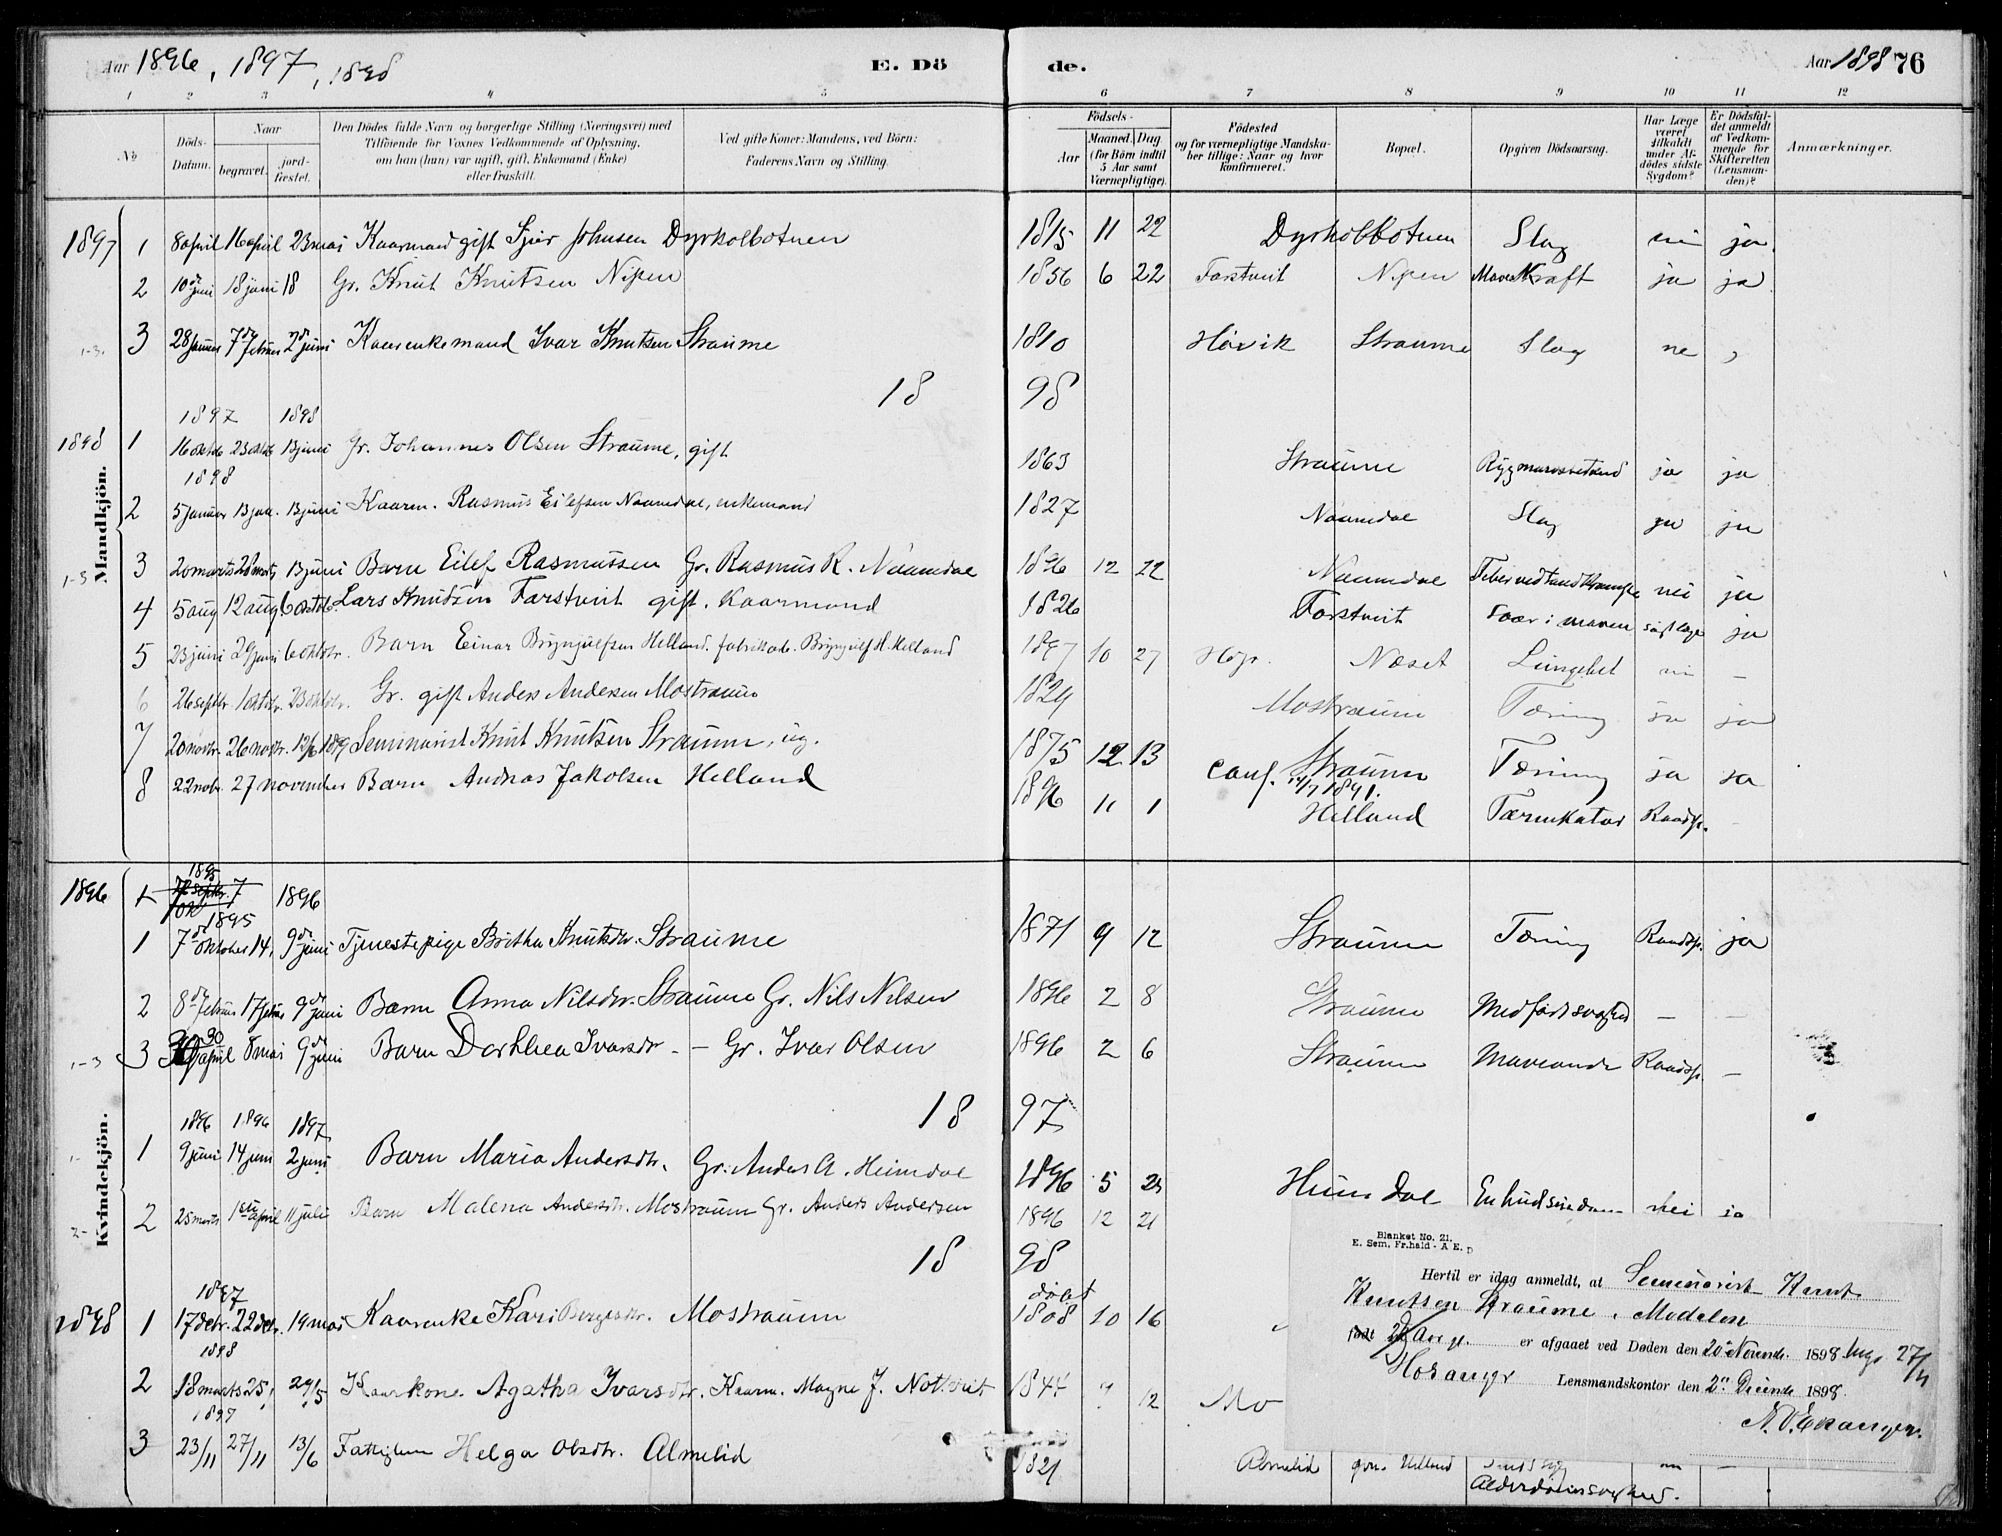 Aar 1896, 1897, 1898 E. Dö de. Aar 1898 76
1 2 3 4 5 6 7 8 9 10 11 12
No Döds-Datum. Naar begravet. jordfæstet. Den Dödes fulde Navn og borgerlige Stilling (Næringsvei) med Tilföiende for Voxnes Vedkommende af Oplysning, om han (hun) var ugift, gift, Enkemand (Enke) eller fraskilt. Ved gifte Koner: Mandens, ved Börn: Faderens Navn og Stilling. Födsels- Aar Maaned. Dag (for Börn indtil 5 Aar samt Værnepligtige). Födested og for værnepligtige Mandskaber tillige: Naar og hvor konfirmeret. Bopæl. Opgiven Dödsaarsag. Har Læge været tilkaldt under Afdödes sidste Sygdom? Er Dödsfaldet anmeldt af Vedkommende for Skifteretten (Lensmanden)? Anmærkninger.
Mandkjön.
1897 1 8 april 16 april 23 mai Kaarmand gift Sjur Johnsen Dyrkolbotnen 1815 11 22 Dyrkolbotnen Slag nei ja
2 10de juni 18 juni 18 Gr. Knut Knutsen Nipen 1856 6 22 Farstveit Nipen Mavekræft ja ja
1-3. 3 28 januar 7de februar 2d juni Kaarenkemand Ivar Knutsen Straume 1810 Høvik Straume Slag ne
18 98
1897 1898
1898 1 16 oktob 23 oktb 13 juni Gr. Johannes Olsen Straume, gift 1863 Straume ja ja
1898
2 5 januar 13 jan. 13 juni Kaarm. Rasmus Eilefsen Naamdal, enkemand 1827 Naamdal Slag ja
1-3 3 20 marts 28 marts 13 juni Barn Eilef Rasmussen Gr. Rasmus R. Naamdal 1896 12 22 Naamdal nei ja
4 5 aug 12 aug 6 oktob Lars Knudsen Farstveit gift. Kaarmand 1826 Farstveit Svær i maven ja
5 23 juni 29 juni 6 oktbr. Barn Einar Brynjulfsen Helland. fabrikarb. Brynjulf H. Helland 1897 10 27 Næset nei –
6 26 septbr. 1 oktbr. 23 oktbr. Gr. gift Anders Andersen Mostraum 1824 Mostraum Tæring ja ja
7 20 novbr. 26 novbr. 12/6 1899 Seminarist Knut Knutsen Straume, ug. 1875 12 13 conf. Straume Tæring ja ja
1891.
8 22 nobr. 27 november Barn Andreas Jakobsen Helland 1896 11 1 Helland Tarmkatar Raadsp. –
Kvindekjön.
1896 1895 1896
1895
1 7de oktober 14, 9de juni Tjenestepige Britha Knutsdtr. Straume 1871 9 12 Straume Tæring Raadsp. ja
2 8de februar 17 februar 9de juni Barn Anna Nilsdtr. Straume Gr. Nils Nilsen 1896 2 8 Straume Medfødt svaghed – –
1-3 3 30 april 8 mai 9de juni Barn Dorthea Ivarsdtr – – Gr. Ivar Olsen 1896 2 6 Straume Maveonde Raadsp. –
18 97
1896 1896 1897
1 9 juni 14 juni 2 juni Barn Maria Andersdtr. Gr. Anders A. Heimdal 1896 5 Heimdal nei ja
2 25 marts 1ste april 11 juli Barn Malena Andersdtr. Mostraum Gr. Anders Andersen 1896 12 21
18 98
1897 døbt
1898 1 17 debr. 22 debr. 19 mai Kaarenke Kari Bergesdtr. Mostraum 1808 10 16
1898
2 18 marts 25, 29/5 Kaarkone Agatha Ivarsdtr. Kaarm. Magne J. Nottveit 1844 12 Mo
1897
3 23/11 27/11 13/6 Fattiglem Helga Olsdtr. Almelid 1821 Almelid Helland –
Alderdomssvaghed.
Blanket No. 21.
E. Sem, Fr.hald - A E. D
Hertil er idag anmeldt, at Seminarist Knut
Knutsen Straume, Modalen
født er afgaaet ved Døden den 20 Novemb. 1898 27/11
Hosanger Lensmandskontor den 2 Decemb 1898.